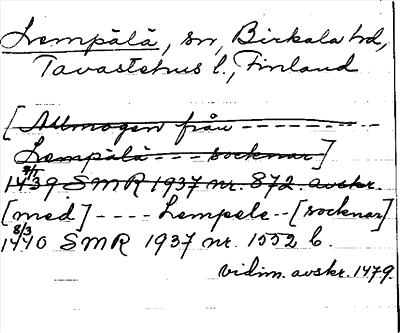 Lempälä, sn, Birkala hd,
Tavastehus l., Finland
[Allmogen från ----------
Lempälä --- socknar]
9/1
1439 SMR 1937 nr. 872. avskr.
[med] ---- Lempele -- [socknar]
8/3
1440 SMR 1937 nr. 1552 b.
vidim. avskr. 1479.